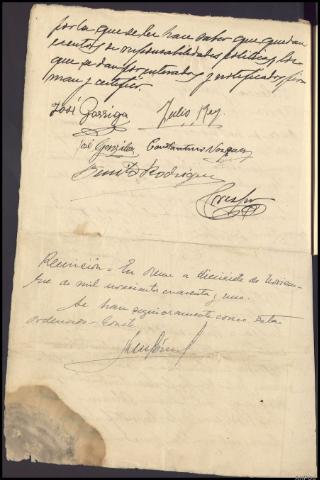 por la que se les hace saber que quedan
exentos de responsabilidades políticas, los
que se dan por enterados y notificados, fir
man y certifico
José Garriga Julio Rey
José González Constantino Vazquez
Benito Rodriguez
Crespo
Remisión = En Orense a dieciséis de Noviem
bre de mil novecientos cuarenta y uno.
Se han
ordenado = Conste